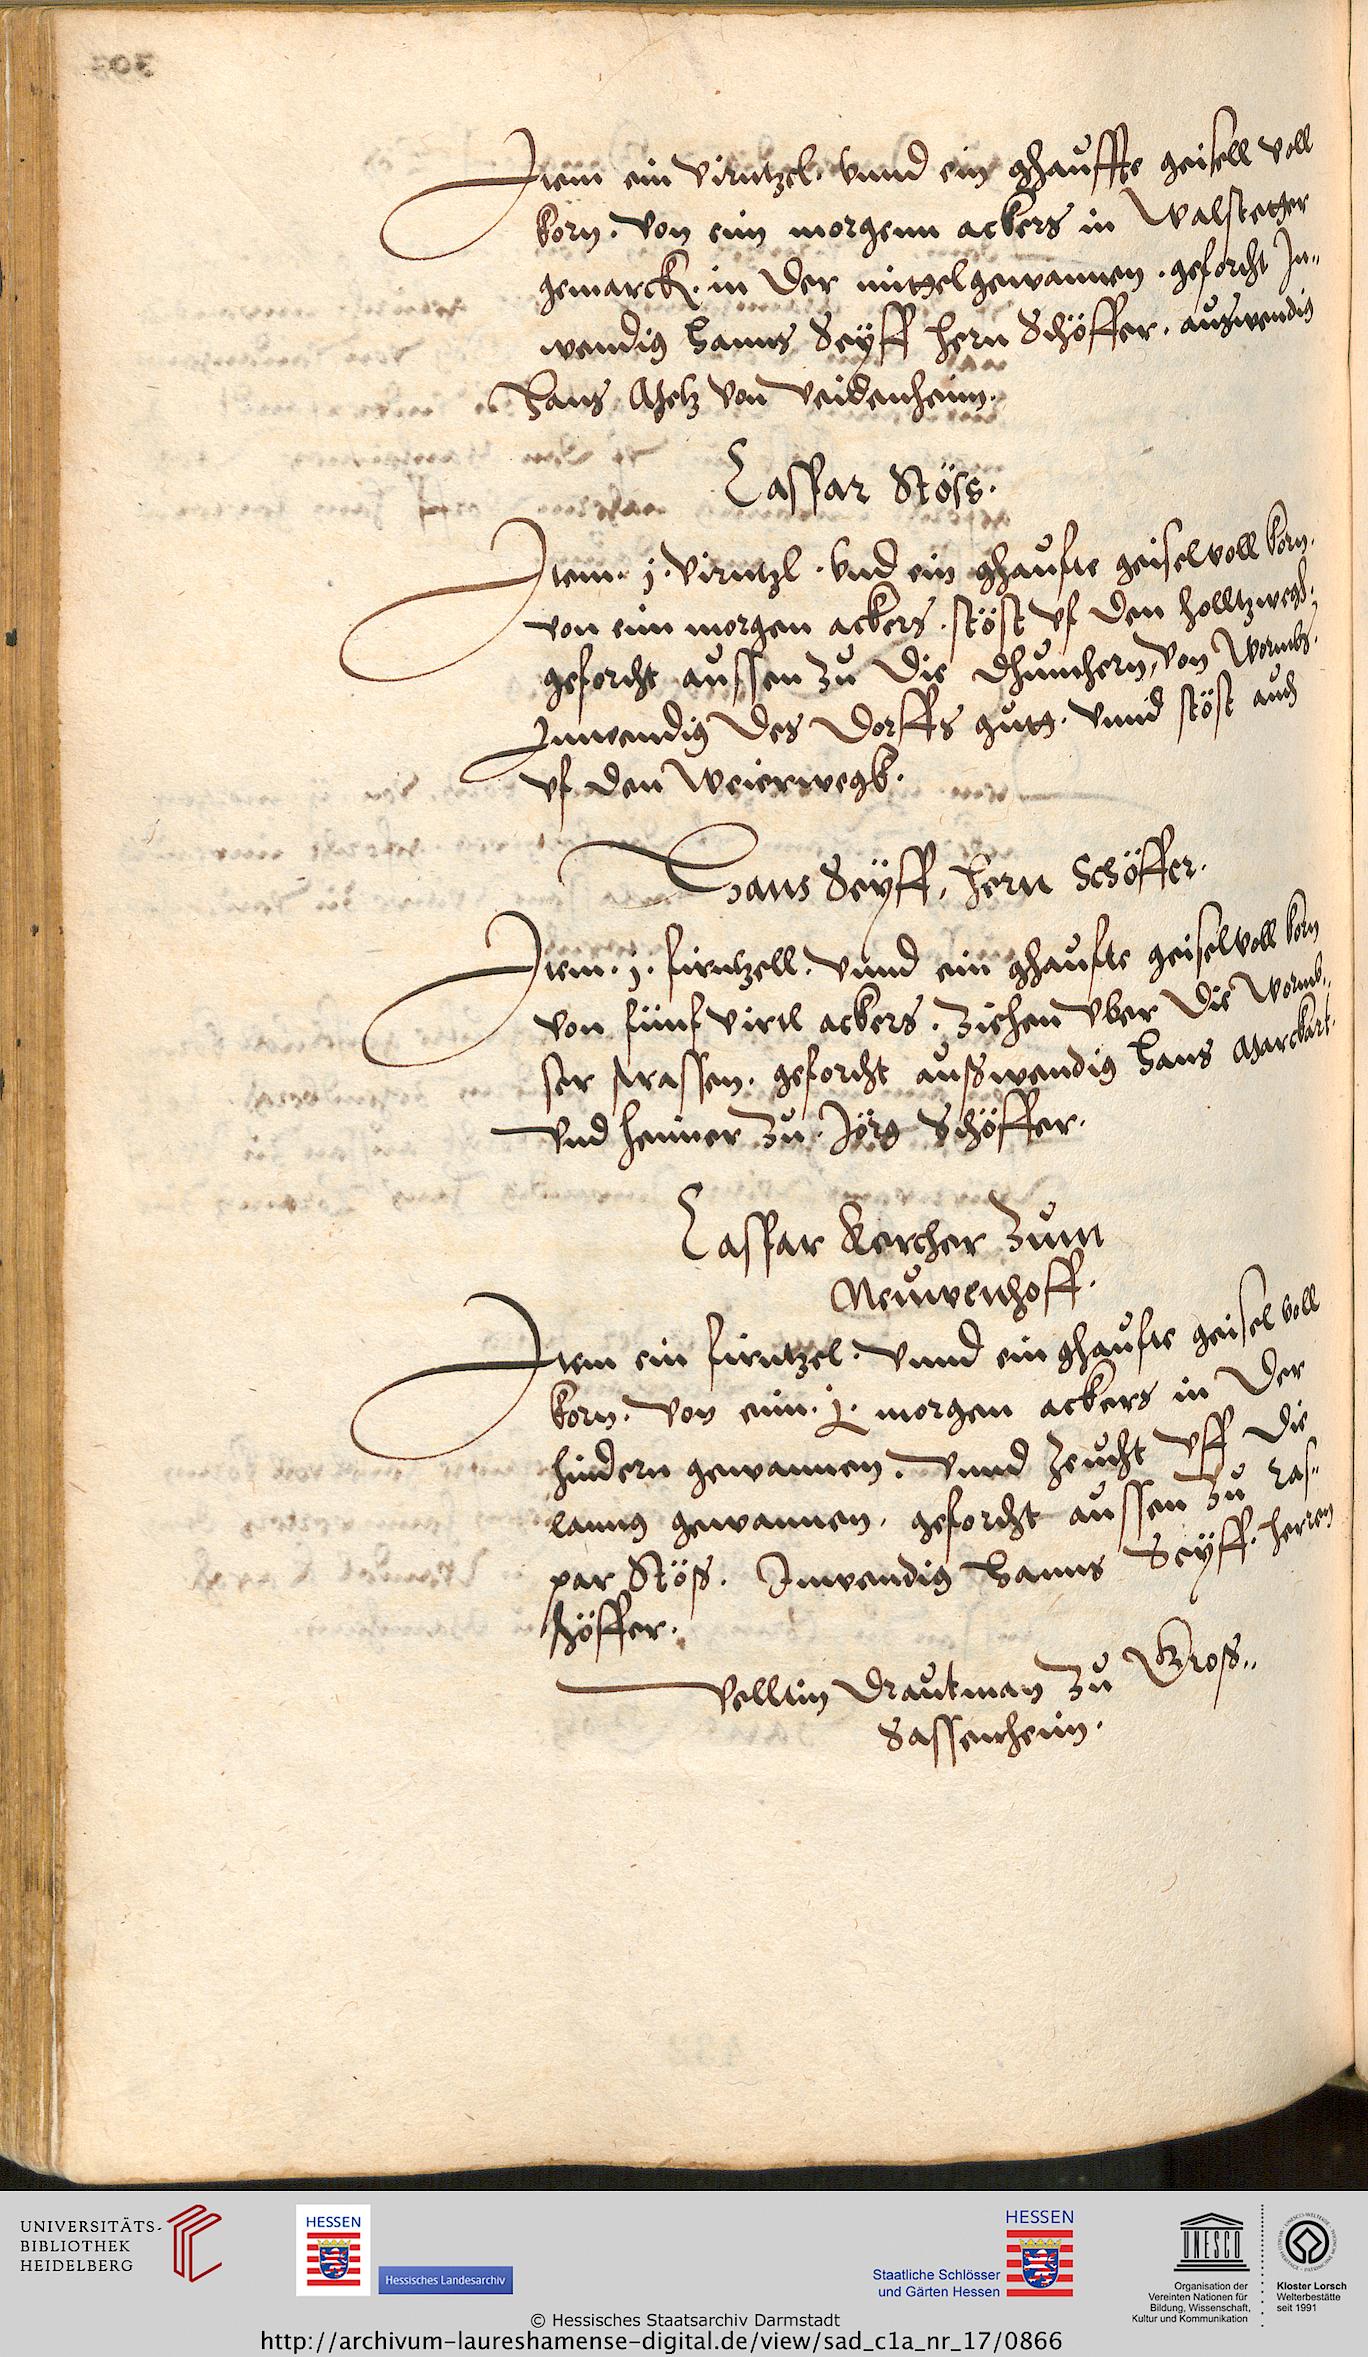 Item ein virntzel. vnnd ein ghauffte geisell voll
korn. von eim morgenn ackers in Walstetter
gemarck. in der mittelgewannen. geforcht In-
wendig Hanns Seÿff hern Schöffer. auswendig
Hans Metz von veidenheim.
Caspar Stöss.
Item. j. virntzl. vnd ein ghaufte geisel voll korn.
von eim morgen ackers. stöst vf den holltzwegk.
geforcht aussen zu die dhumhern, von Wormbs.
Inwendig des dorffs gutt. vnnd stöst auch
vf den Weierwegk.
Hans Seÿff, hern Schöffer.
Item. j. firntzell. vnnd ein ghaufte geisel voll korn
von fünf virtl ackers. ziehen vber die Wormb-
ser strassen. geforcht außwendig Hans Marckart.
vnd heimer zu. Jörg Schöffer.
Caspar Kercher zum
Neuwenhoff.
Item ein firntzel. vnnd ein ghaufte geisel voll
korn. von eim. j. morgen ackers in der
hindern gewannen. vnnd zeucht vff die
lanng gewannen. geforcht aussen zu Cas-
par Stöß. Inwendig Hanns Seÿff. herren
schöffer.
Velltin Drautman zu Gross-
Sassenheim.
UNIVERSITÄTS-
BIBLIOTHEK
HEIDELBERG
HESSEN
Hessisches Landesarchiv
HESSEN
Staatliche Schlösser
und Gärten Hessen
UNESCO
Organisation der
Vereinten Nationen für
Bildung, Wissenschaft,
Kultur und Kommunikation
Kloster Lorsch
Welterbestätte
seit 1991
© Hessisches Staatsarchiv Darmstadt
http://archivum-laureshamense-digital.de/view/sad_c1a_nr_17/0866